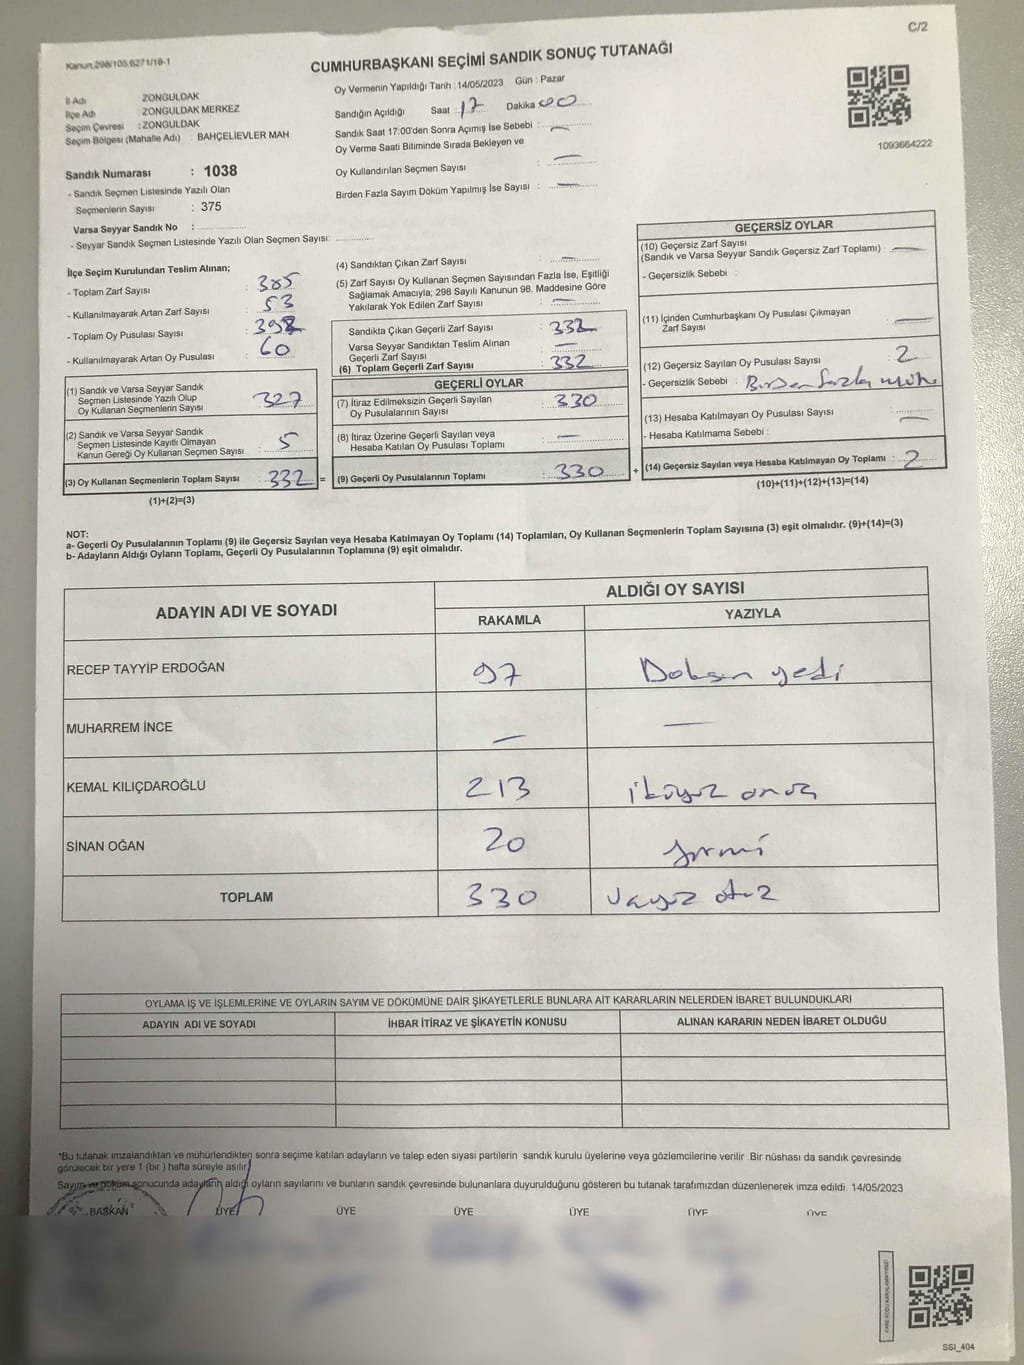 C/2
Kanun:298/105,6271/18-1
CUMHURBAŞKANI SEÇİMİ SANDIK SONUÇ TUTANAĞI
Oy Vermenin Yapıldığı Tarih :14/05/2023 Gün : Pazar
İl Adı ZONGULDAK
İlçe Adı : ZONGULDAK MERKEZ
Seçim Çevresi : ZONGULDAK
Seçim Bölgesi (Mahalle Adı) : BAHÇELİEVLER MAH.
Sandığın Açıldığı Saat : 17 Dakika 00
Sandık Saat 17:00'den Sonra Açımış İse Sebebi : —
Oy Verme Saati Bitiminde Sırada Bekleyen ve
Oy Kullandırılan Seçmen Sayısı : —
Birden Fazla Sayım Döküm Yapılmış İse Sayısı : —
1093664222
Sandık Numarası : 1038
- Sandık Seçmen Listesinde Yazılı Olan
Seçmenlerin Sayısı : 375
Varsa Seyyar Sandık No :
- Seyyar Sandık Seçmen Listesinde Yazılı Olan Seçmen Sayısı:
İlçe Seçim Kurulundan Teslim Alınan;
- Toplam Zarf Sayısı : 385
- Kullanılmayarak Artan Zarf Sayısı : 53
- Toplam Oy Pusulası Sayısı : 392
- Kullanılmayarak Artan Oy Pusulası : 60
(1) Sandık ve Varsa Seyyar Sandık
Seçmen Listesinde Yazılı Olup
Oy Kullanan Seçmenlerin Sayısı : 327
(2) Sandık ve Varsa Seyyar Sandık
Seçmen Listesinde Kayıtlı Olmayan
Kanun Gereği Oy Kullanan Seçmen Sayısı : 5
(3) Oy Kullanan Seçmenlerin Toplam Sayısı : 332 =
(1)+(2)=(3)
(4) Sandıktan Çıkan Zarf Sayısı : —
(5) Zarf Sayısı Oy Kullanan Seçmen Sayısından Fazla İse, Eşitliği
Sağlamak Amacıyla; 298 Sayılı Kanunun 98. Maddesine Göre
Yakılarak Yok Edilen Zarf Sayısı : —
Sandıkta Çıkan Geçerli Zarf Sayısı : 332
Varsa Seyyar Sandıktan Teslim Alınan
Geçerli Zarf Sayısı : —
(6) Toplam Geçerli Zarf Sayısı : 332
GEÇERLİ OYLAR
(7) İtiraz Edilmeksizin Geçerli Sayılan
Oy Pusulalarının Sayısı : 330
(8) İtiraz Üzerine Geçerli Sayılan veya
Hesaba Katılan Oy Pusulası Toplamı : —
(9) Geçerli Oy Pusulalarının Toplamı : 330 +
GEÇERSİZ OYLAR
(10) Geçersiz Zarf Sayısı
(Sandık ve Varsa Seyyar Sandık Geçersiz Zarf Toplamı) : —
- Geçersizlik Sebebi :
(11) İçinden Cumhurbaşkanı Oy Pusulası Çıkmayan
Zarf Sayısı : —
(12) Geçersiz Sayılan Oy Pusulası Sayısı : 2
- Geçersizlik Sebebi : Birden fazla
(13) Hesaba Katılmayan Oy Pusulası Sayısı : —
- Hesaba Katılmama Sebebi :
(14) Geçersiz Sayılan veya Hesaba Katılmayan Oy Toplamı : 2
(10)+(11)+(12)+(13)=(14)
NOT:
a- Geçerli Oy Pusulalarının Toplamı (9) ile Geçersiz Sayılan veya Hesaba Katılmayan Oy Toplamı (14) Toplamları, Oy Kullanan Seçmenlerin Toplam Sayısına (3) eşit olmalıdır. (9)+(14)=(3)
b- Adayların Aldığı Oyların Toplamı, Geçerli Oy Pusulalarının Toplamına (9) eşit olmalıdır.
ADAYIN ADI VE SOYADI ALDIĞI OY SAYISI
RAKAMLA YAZIYLA
RECEP TAYYİP ERDOĞAN 97 Doksan yedi
MUHARREM İNCE — —
KEMAL KILIÇDAROĞLU 213 ikiyüz onüç
SİNAN OĞAN 20 yirmi
TOPLAM 330 üçyüz otuz
OYLAMA İŞ VE İŞLEMLERİNE VE OYLARIN SAYIM VE DÖKÜMÜNE DAİR ŞİKAYETLERLE BUNLARA AİT KARARLARIN NELERDEN İBARET BULUNDUKLARI
ADAYIN ADI VE SOYADI İHBAR İTİRAZ VE ŞİKAYETİN KONUSU ALINAN KARARIN NEDEN İBARET OLDUĞU
*Bu tutanak imzalandıktan ve mühürlendikten sonra seçime katılan adayların ve talep eden siyasi partilerin sandık kurulu üyelerine veya gözlemcilerine verilir .Bir nüshası da sandık çevresinde
görülecek bir yere 1 (bir ) hafta süreyle asılır.
Sayım ve döküm sonucunda adayların aldığı oyların sayılarını ve bunların sandık çevresinde bulunanlara duyurulduğunu gösteren bu tutanak tarafımızdan düzenlenerek imza edildi. 14/05/2023
BAŞKAN ÜYE ÜYE ÜYE ÜYE ÜYE ÜYE
SSI_404